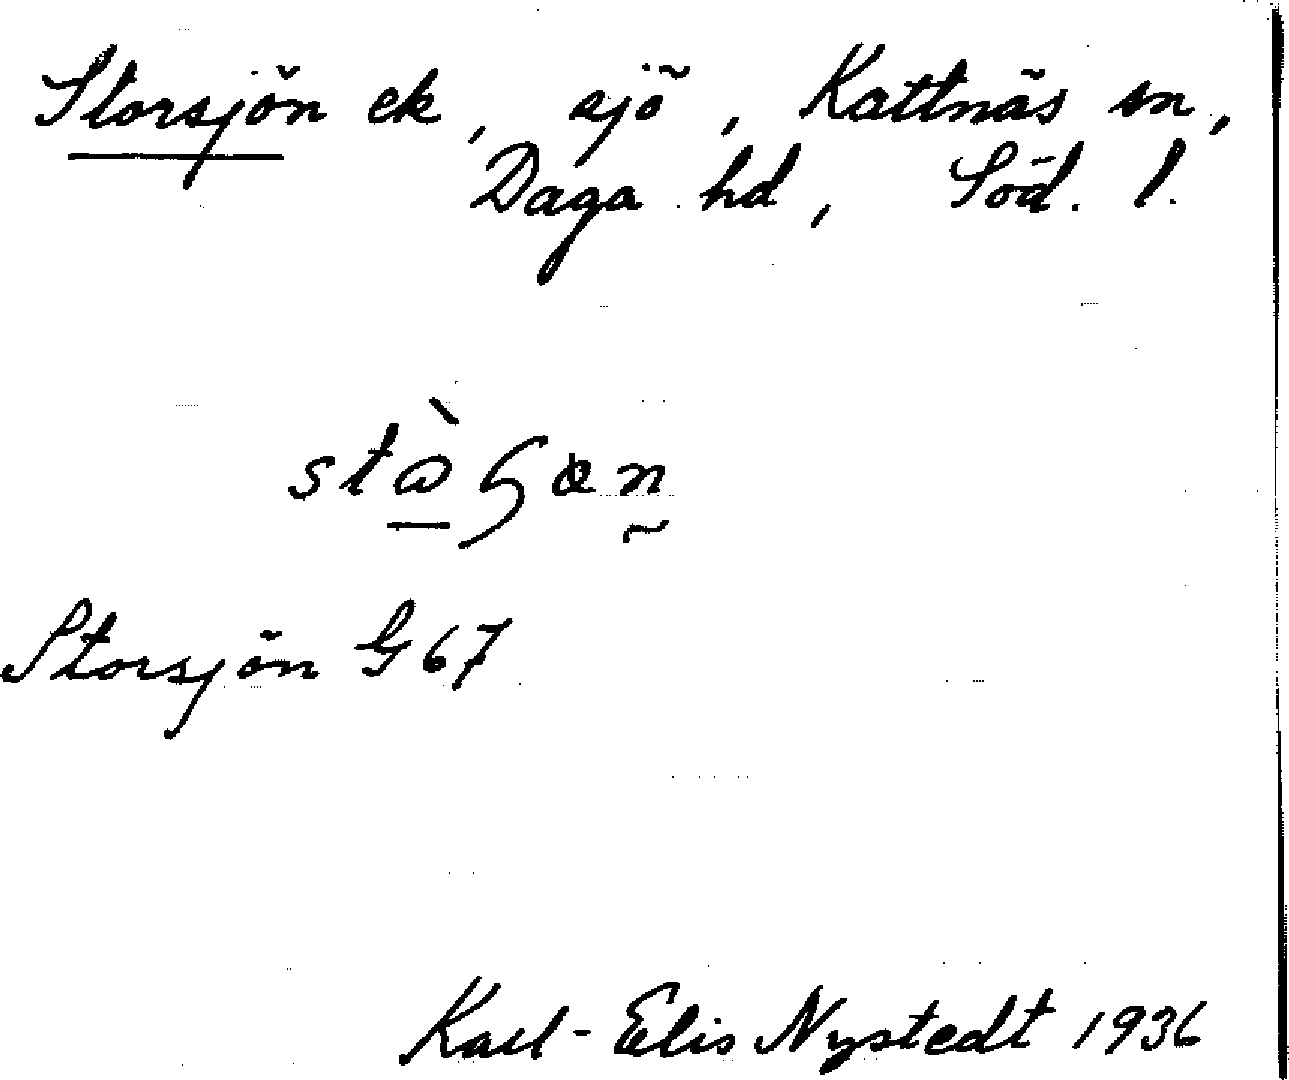 Storsjön ek, sjö, Kattnäs sn,
Daga hd, Söd. l.
Storsjön G 67
Karl-Elis Nystedt 1936